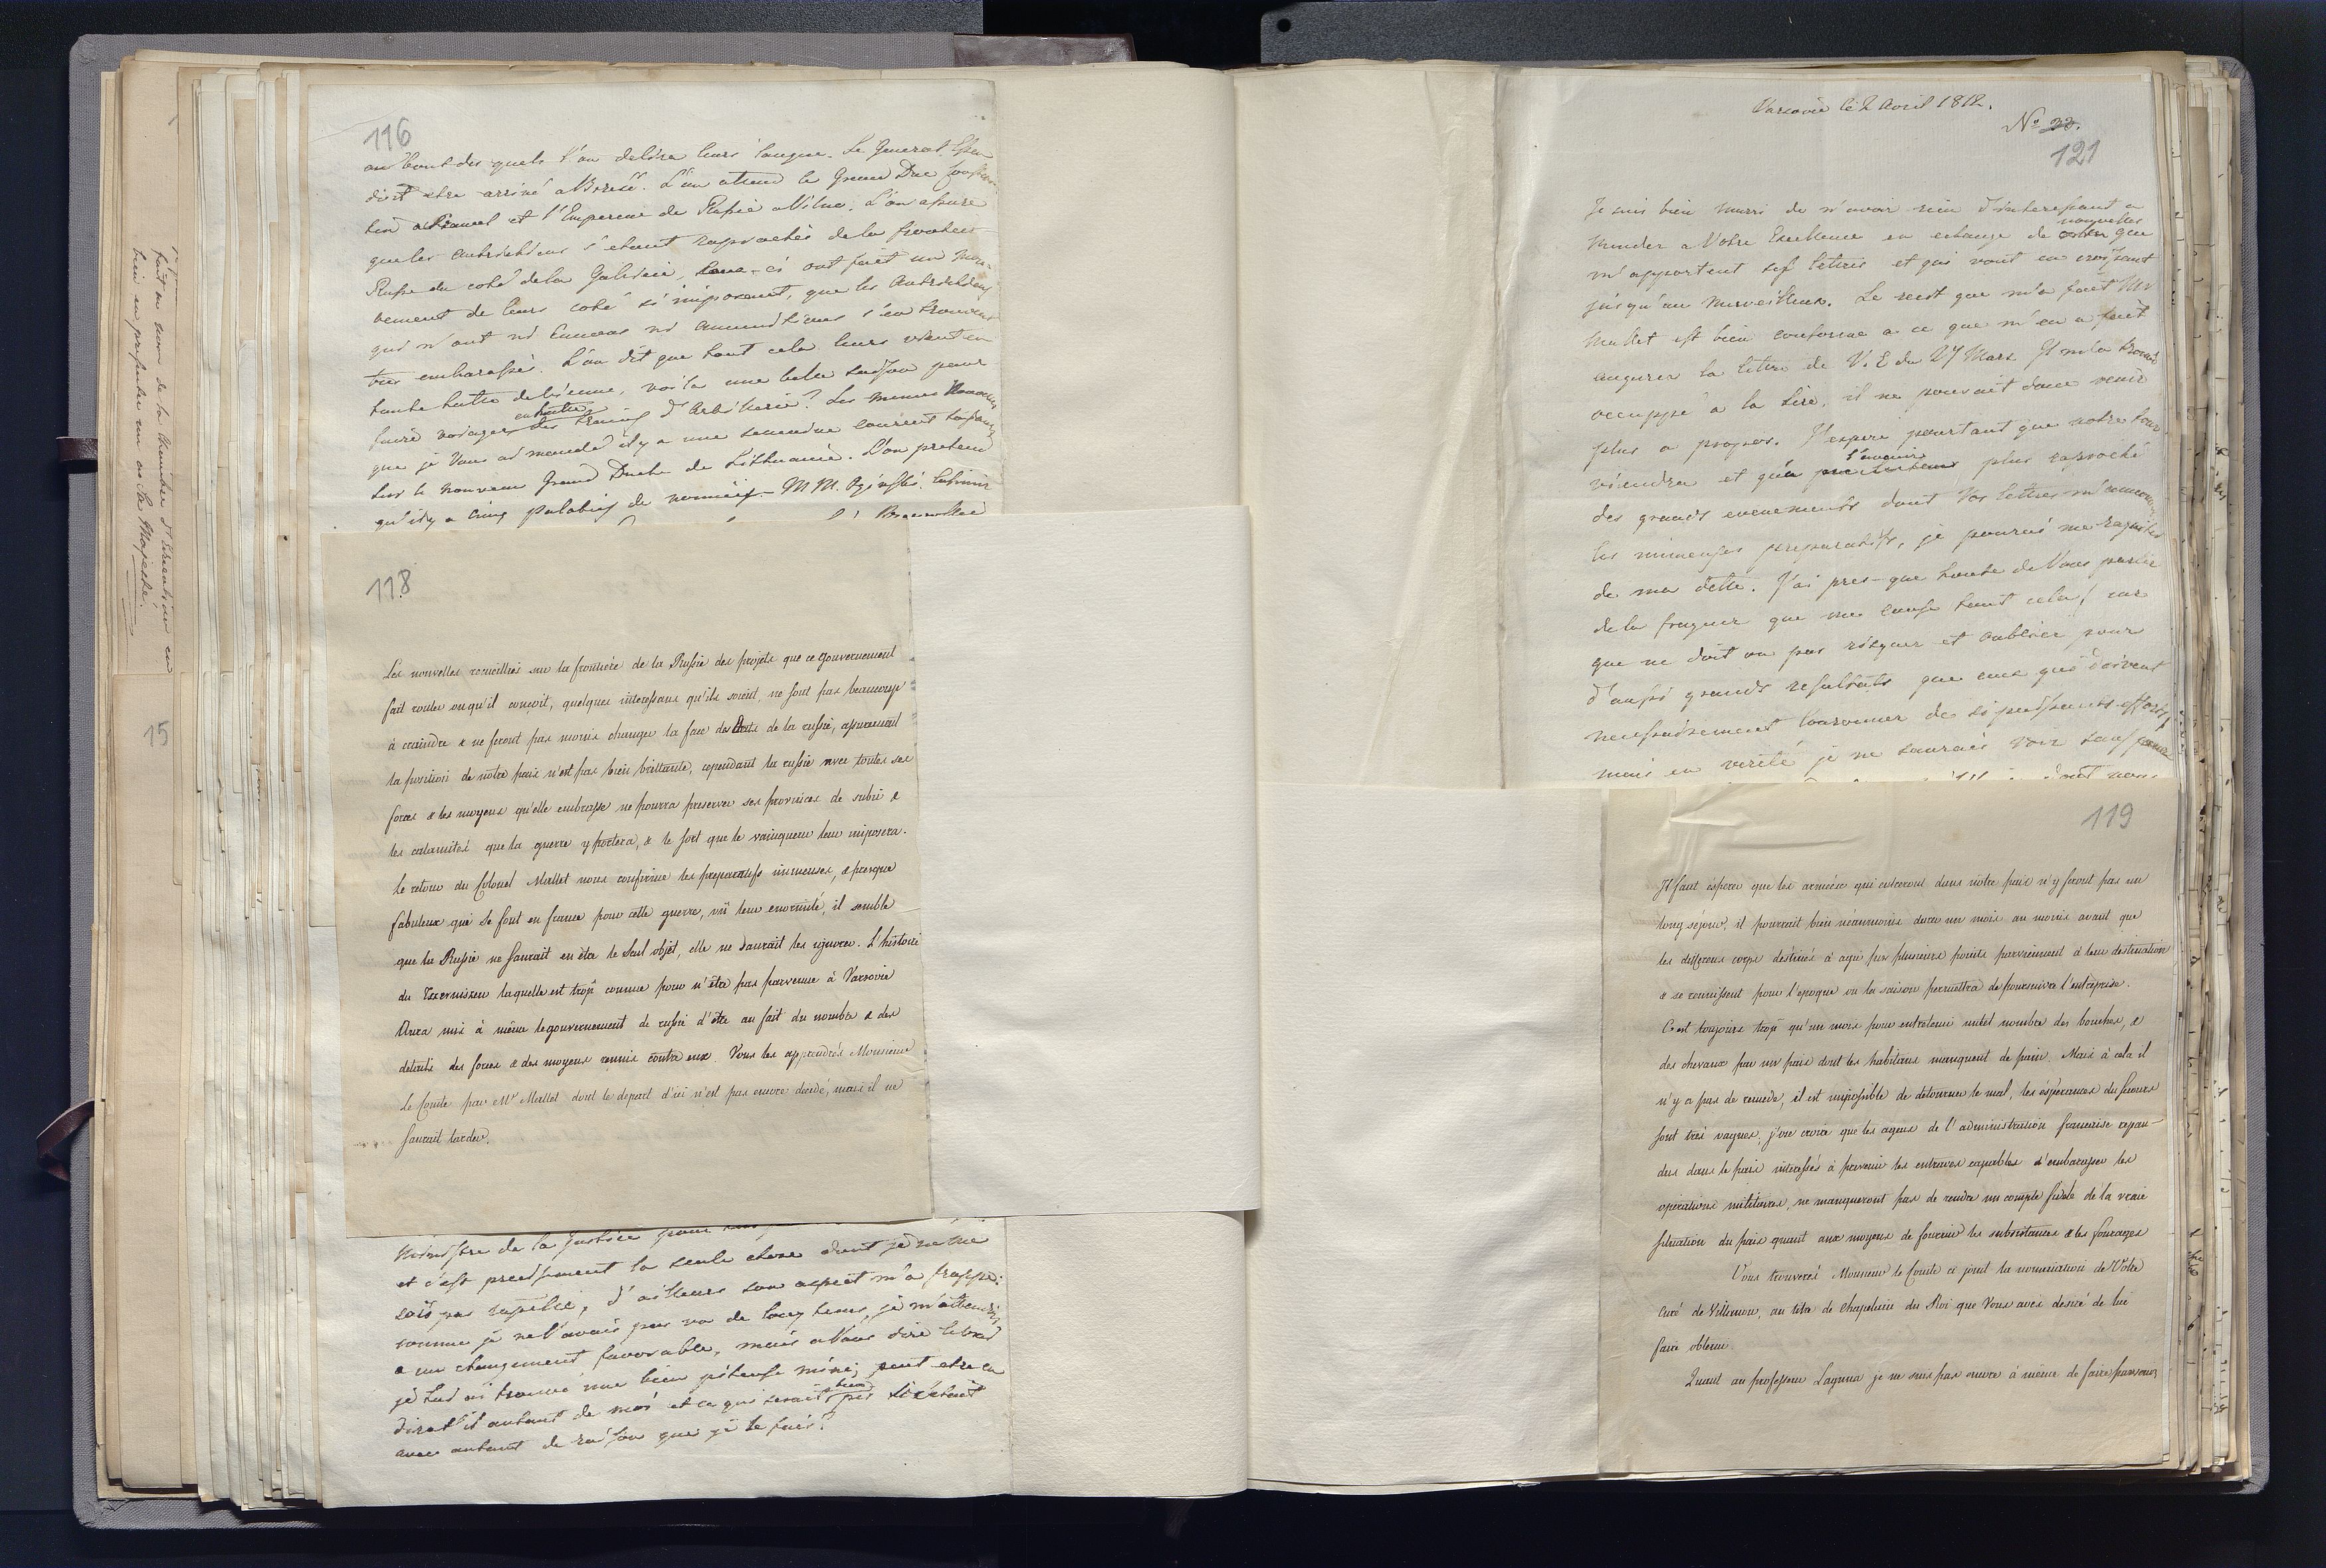 116
au bout des quels l'on deliera leurs langue. Le General Essen
doit etre arrivé a Brzesć. L'on attend le Grand Duc Constan-
tin a et l'Empereur de Russie a Vilna. L'on assure
que les Autrichiens s'etant raprochés de la frontiere
Russe du coté de la Galicie, ceux-ci ont fait un mou-
vement de leurs coté si imposant, que les Autrichiens
qui n'ont ni Canons ni ammunitions s'en trouvent
tres embarassés. L'on dit que tout cela leurs vient en
toute hatte de Vienne, voila une belle saison pour
en hatte
faire voiager des trains d'Artillerie? Les memes
que je Vous ai mandé il y a une semaine courent toujours
sur le nouveau Grand Duché de Lithuanie. L'on pretend
qu'il y a cinq palatins de nommés - MM. Oginski,
118
Les nouvelles recueillies sur la frontière de la Russie des projets que ce gouvernement
fait rouler ou qu'il conçoit, quelques interessans qu'ils soient, ne sont pas beaucoup
à craindre & ne feront pas moins changer la face des Etats de la russie, assurement
la position de notre païs n'est pas bien brillante, cependant la russie avec toutes ses
forces & les moyens qu'elle embrasse ne pourra preserver ses provinces de subir &
les calamités que la guerre y portera, & le sort que le vainqueur leur imposera.
Le retour du Colonel Mallet nous confirme les preparatifs immenses, & presque
fabuleux qui se font en france pour cette guerre, vû leur enormité, il semble
que la Russie ne saurait en être le seul objet, elle ne saurait les ignorer. L'histoire
du Tzerniszew laquelle est trop connue pour n'être pas parvenue à Varsovie
Aura mis à même le gouvernement de russie d'être au fait du nombre & des
details des forces & des moyens reunis contre eux. Vous les apprendrés Monsieur
Le Comte par Mr Mallet dont le depart d'ici n'est pas encore decidé, mais il ne
saurait tarder.
Ministre de la Justice pour
et c'est precisement la seule chose dont je ne me
sois pas rapellé, d'ailleurs son aspect m'a frappé:
comme je ne l'avais pas vu de long tems, je m'attendois
a un changement favorable, mais a Vous dire le vrai
je lui ai trouvé une bien piteuse mine; peut etre en
bien
dirat'il autant de moi et ce qui serait pis si c'etait
avec autant de raison que je le fais?
fait au nom de la Chambre d'Education en
bien en presenter un au Sa Majesté.
15
Varsovie le 2 Avril 1812.
No 33.
121
Je suis bien marri de n'avoir rien d'interessant a
nouvelles
mander a Votre Excellence en echange de celles que
m'apportent ses lettres et qui vont en croissant
jusqu'au merveilleux. Le recit que m'a fait Mr
Mallet est bien conforme a ce que m'en a fait
augurer la lettre de V. E du 27 Mars Il m'a trouvé
occuppé a la lire, il ne pouvait donc venir
plus a propos. J'espere pourtant que notre tour
l'avenir
viendra et qu'a plus raproché
des grands evenements dont Vos lettres m'annoncent
les immenses preparatifs, je pourrai me raquiter
de ma dette. J'ai pres-que honte de Vous parler
de la frayeur que me cause tout cela, car
que ne doit on pas risquer et oublier pour
d'aussi grands resultats que ceux qui doivent
necessairement couronner de si puissants efforts,
mais en verité je ne saurais voir sans peine
119
Il faut esperer que les armées qui entreront dans notre païs n'y feront pas un
long séjour, il pourrait bien néanmoins durer un mois au moins avant que
les differens corps destinés à agir sur plusieurs points parviennent à leur destination
& se reunissent pour l'epoque ou la saison permettra de poursuivre l'entreprise.
C'est toujours trop qu'un mois pour entretenir un tel nombre des bouches, &
des chevaux par un païs dont les habitans manquent de pain. Mais à cela il
n'y a pas de remede, il est impossible de detourner le mal, les ésperances du secours
sont très vagues, j'ose croire que les agens de l'administration francaise repan-
dus dans le païs interessés à prevenir les entraves capables d'embarasser les
operations militaires, ne manqueront pas de rendre un compte fidele de la vraie
situation du païs quant aux moyens de fournir les subsistances & les fourages
Vous trouverés Monsieur le Comte ci joint la nomination de Votre
curé de Villanow, au titre de Chapelain du Roi que Vous avés desiré de lui
faire obtenir.
Quant au professeur Laguna je ne suis pas encore à même de faire parvenir